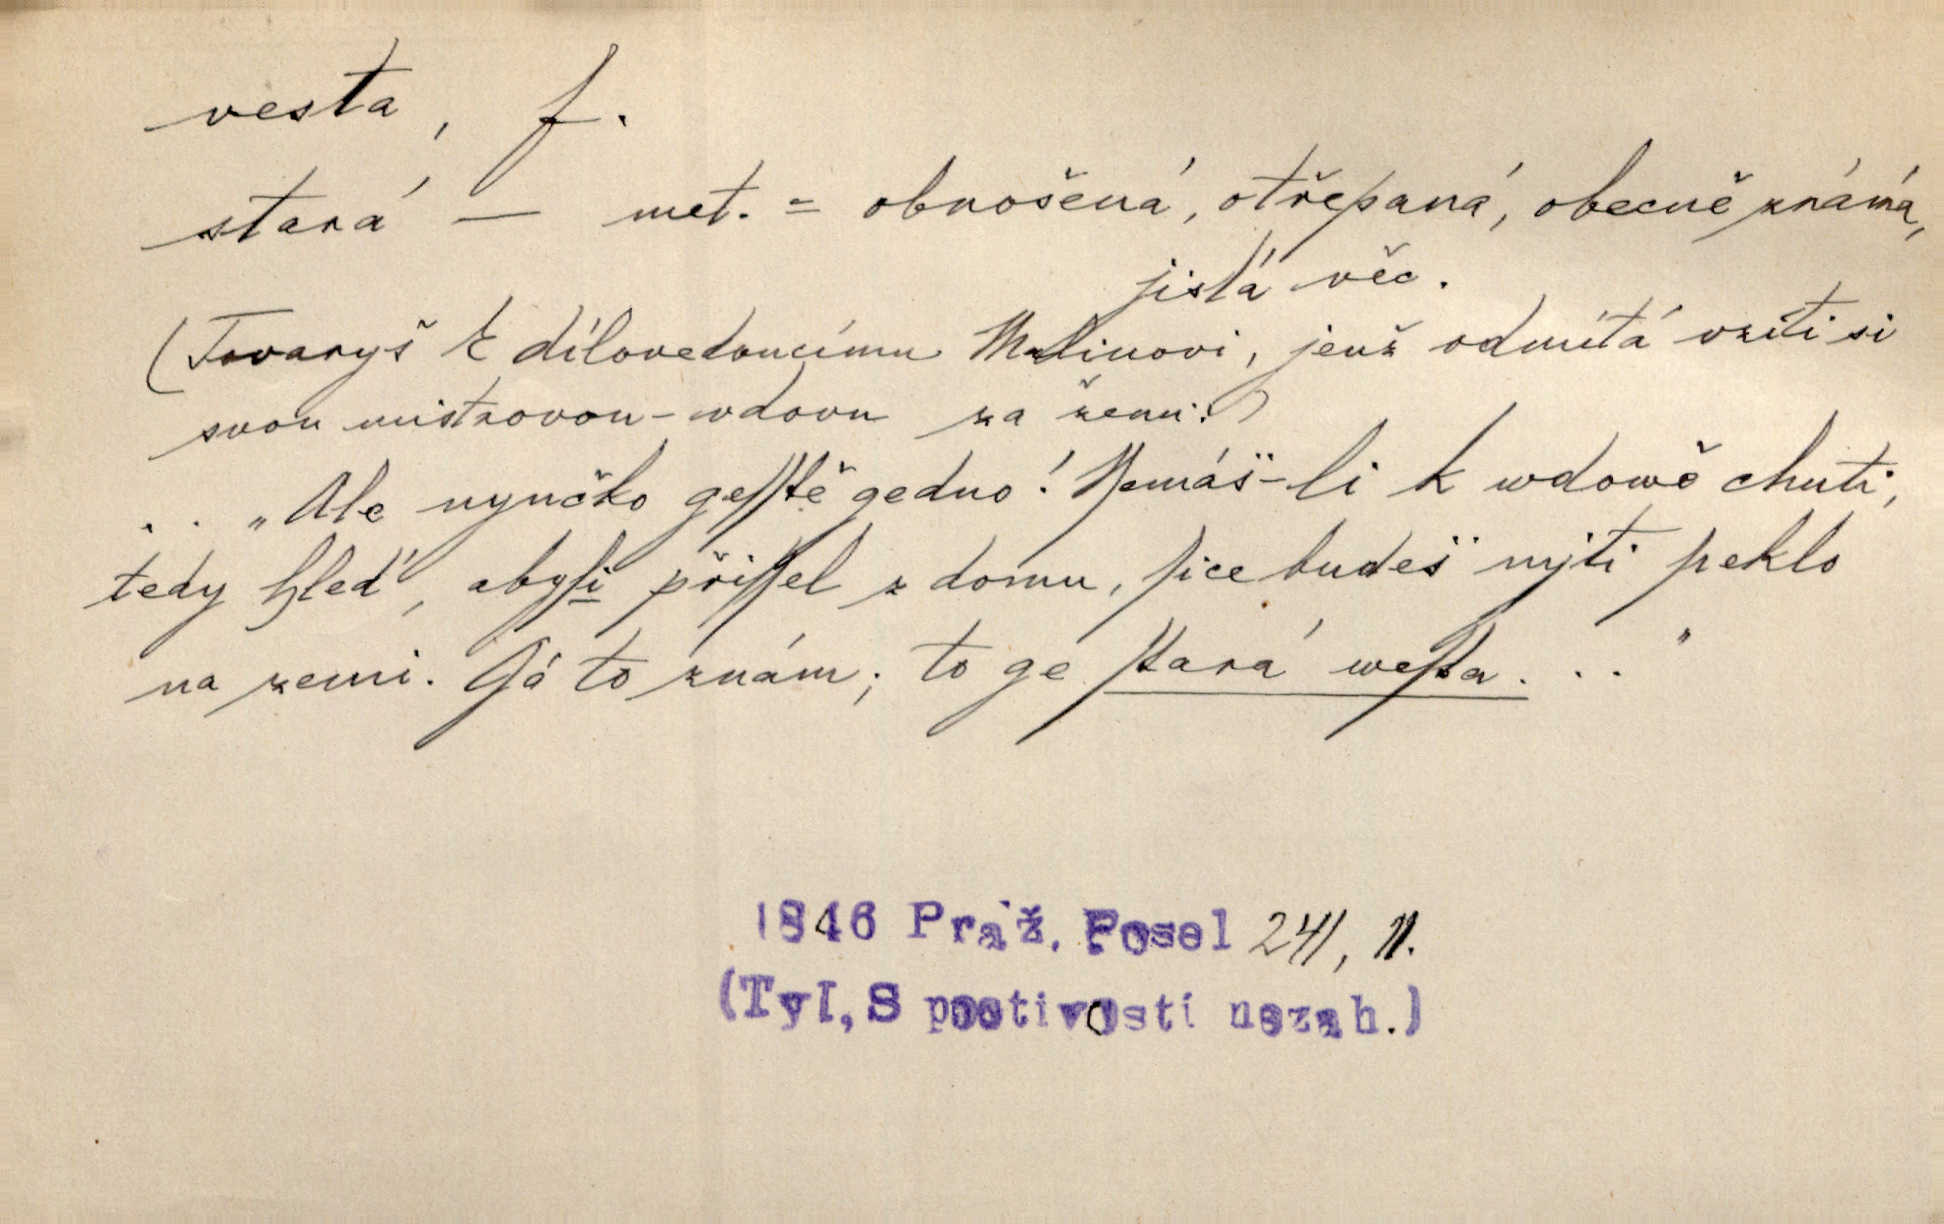 vesta, f.
stará — met. = obnošená, otřepaná, obecně známá,
jistá věc.
(Tovaryš k dílovedoucímu Malinovi, jenž odmítá vzíti si
svou mistrovou-vdovu za ženu:)
. . „Ale nynčko geſſtě gedno! Nemáš-li k wdowě chuti,
tedy hleď, abyſi přiſſel z domu, ſice budeš mjti peklo
na zemi. Gá to znám; to ge ſtará weſta. . . "
1846 Praž. Posel 241, 11.
(Tyl, S poctivostí nezah.)